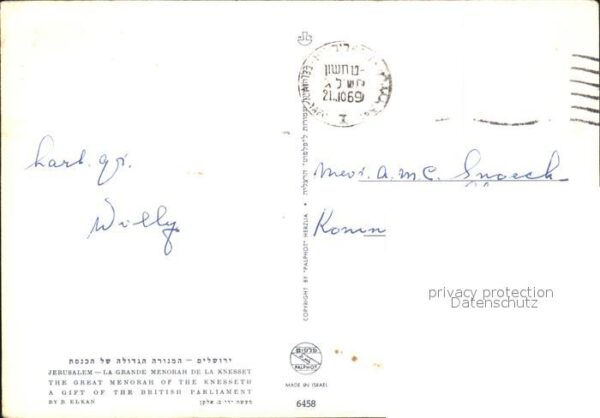 hart. gr.
Willy
ירושלים — המנורה הגדולה של הכנסת
JERUSALEM — LA GRANDE MENORAH DE LA KNESSET
THE GREAT MENORAH OF THE KNESSETH
A GIFT OF THE BRITISH PARLIAMENT
BY B. ELKAN
מעשה ידי ב. אלקן
COPYRIGHT BY "PALPHOT" HERZLIA •
פלפוט
PALPHOT
MADE IN ISRAEL
6458
חשון
21.10.69
Mevr. A.M.C. Snoeck
privacy protection
www.oldthing.de